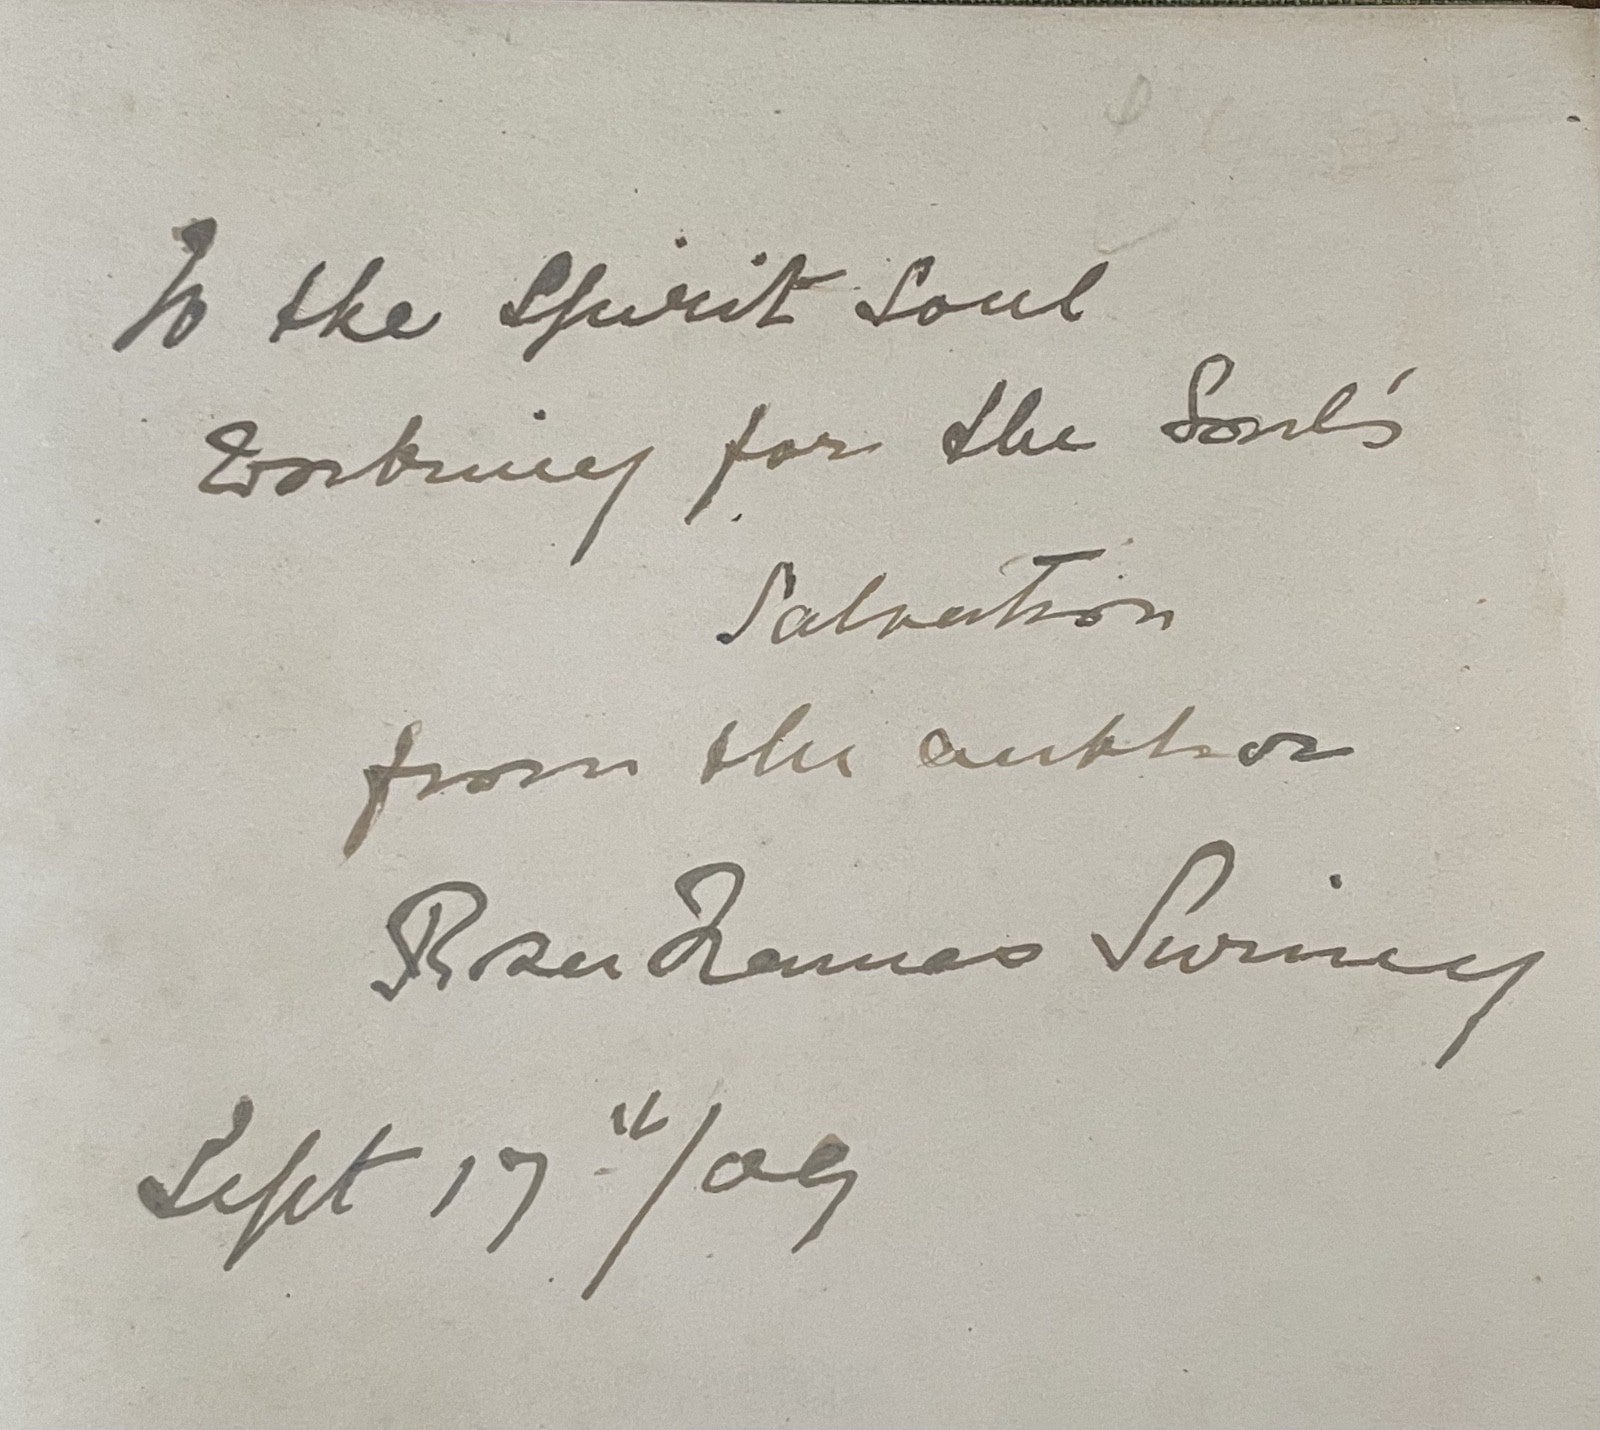 To the Spirit Soul
Working for the Soul's
Salvation
from the author
Rosa Frances Swiney
Sept 17th/09